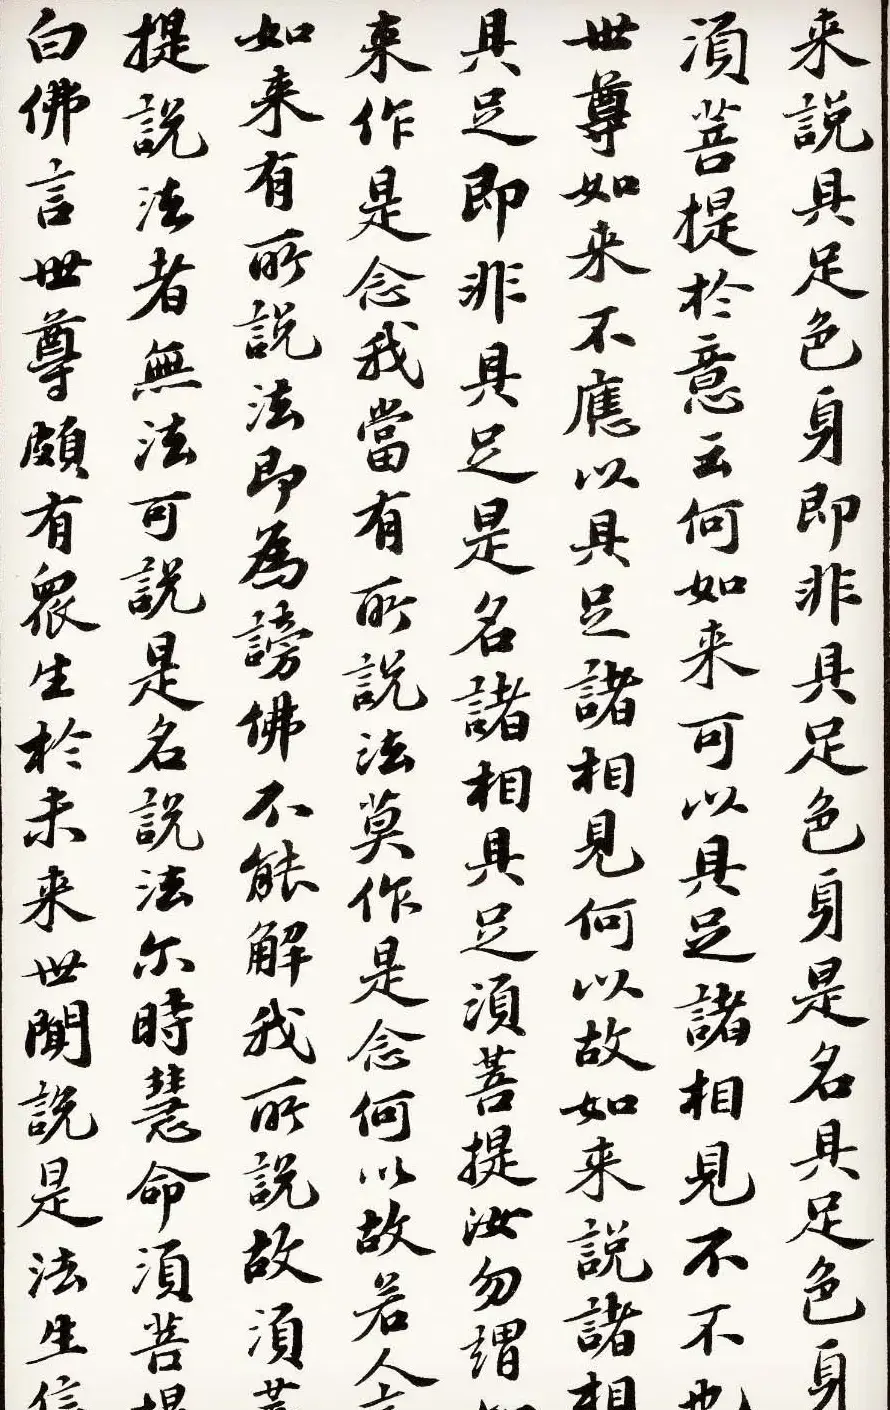 来說具足色身即非具足色身是名具足色身
須菩提於意云何如来可以具足諸相見不不也
世尊如来不應以具足諸相見何以故如来說諸相
具足即非具足是名諸相具足須菩提汝勿謂
来作是念我當有所說法莫作是念何以故若人言
如来有所說法即為謗佛不能解我所說故須菩
提說法者無法可說是名說法尔時慧命須菩提
白佛言世尊頗有衆生於未来世聞說是法生信